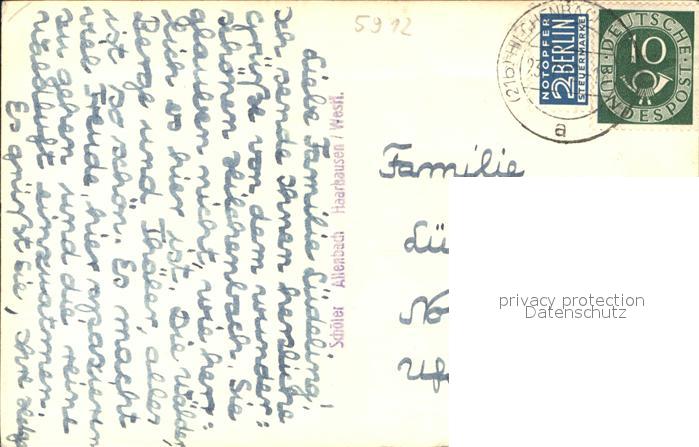 5912
(21b) HILCHENBACH
a
NOTOPFER
2 BERLIN
STEUERMARKE
DEUTSCHE
10
BUNDESPOST
Liebe Familie Lüdeling!
Ich sende Ihnen herzliche
Grüße von dem wunder=
schönen Hilchenbach. Sie
glauben nicht, wie herr=
lich es hier ist. Die Wälder,
Berge und Thäler, alles
ist so schön. Es macht
viel Freude, hier spazieren
zu gehen und die reine
Waldluft einzuatmen.
Es grüßt Sie, Ihre
Schöler Allenbach Haarhausen / Westf.
Familie
Lü
No
privacy protection
Datenschutz